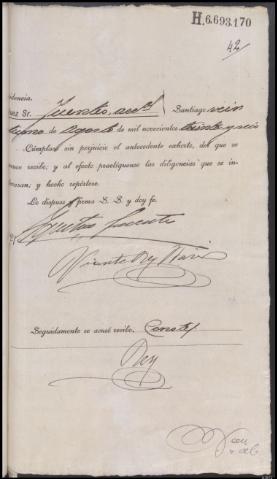 H.6.693.170
42
dencia.
uez Sr. Fuentes, acctl Santiago vein
tiuno de Agosto de mil novecientos treinta y seis
Cúmplase sin perjuicio el antecedente exhorto, del que se
acuse recibo; y al efecto practíquense las diligencias que se in-
teresan; y hecho repórtese.
Lo dispuso y firma S. S. y doy fe.
Fuentes
Vicente Rey
Seguidamente se acusó recibo. Consta
Rey